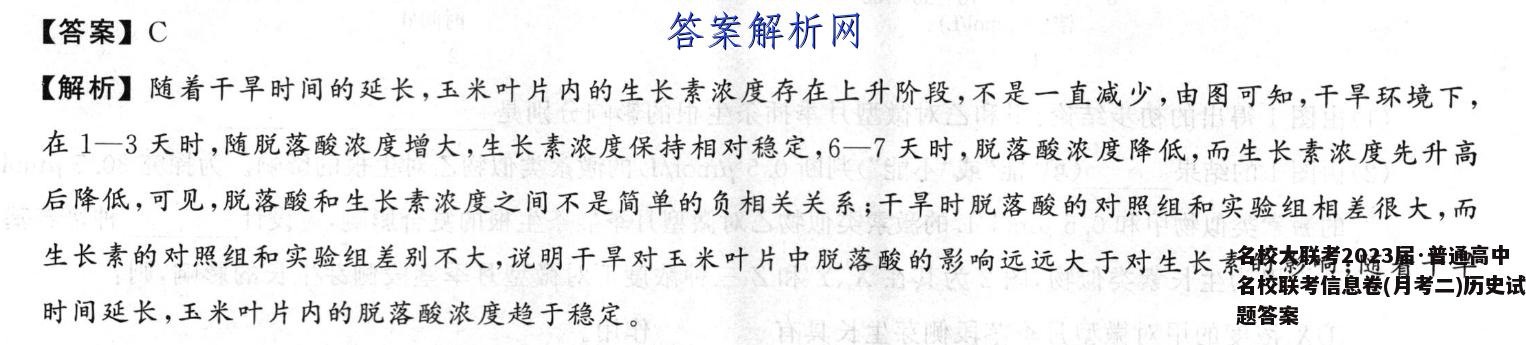 答案解析网
【答案】C
【解析】随着干旱时间的延长,玉米叶片内的生长素浓度存在上升阶段,不是一直减少,由图可知,干旱环境下,
在1—3天时,随脱落酸浓度增大,生长素浓度保持相对稳定,6—7天时,脱落酸浓度降低,而生长素浓度先升高
后降低,可见,脱落酸和生长素浓度之间不是简单的负相关关系;干旱时脱落酸的对照组和实验组相差很大,而
生长素的对照组和实验组差别不大,说明干旱对玉米叶片中脱落酸的影响远远大于对生长素的影响;随着干旱
时间延长,玉米叶片内的脱落酸浓度趋于稳定。
名校大联考2023届·普通高中
名校联考信息卷(月考二)历史试
题答案